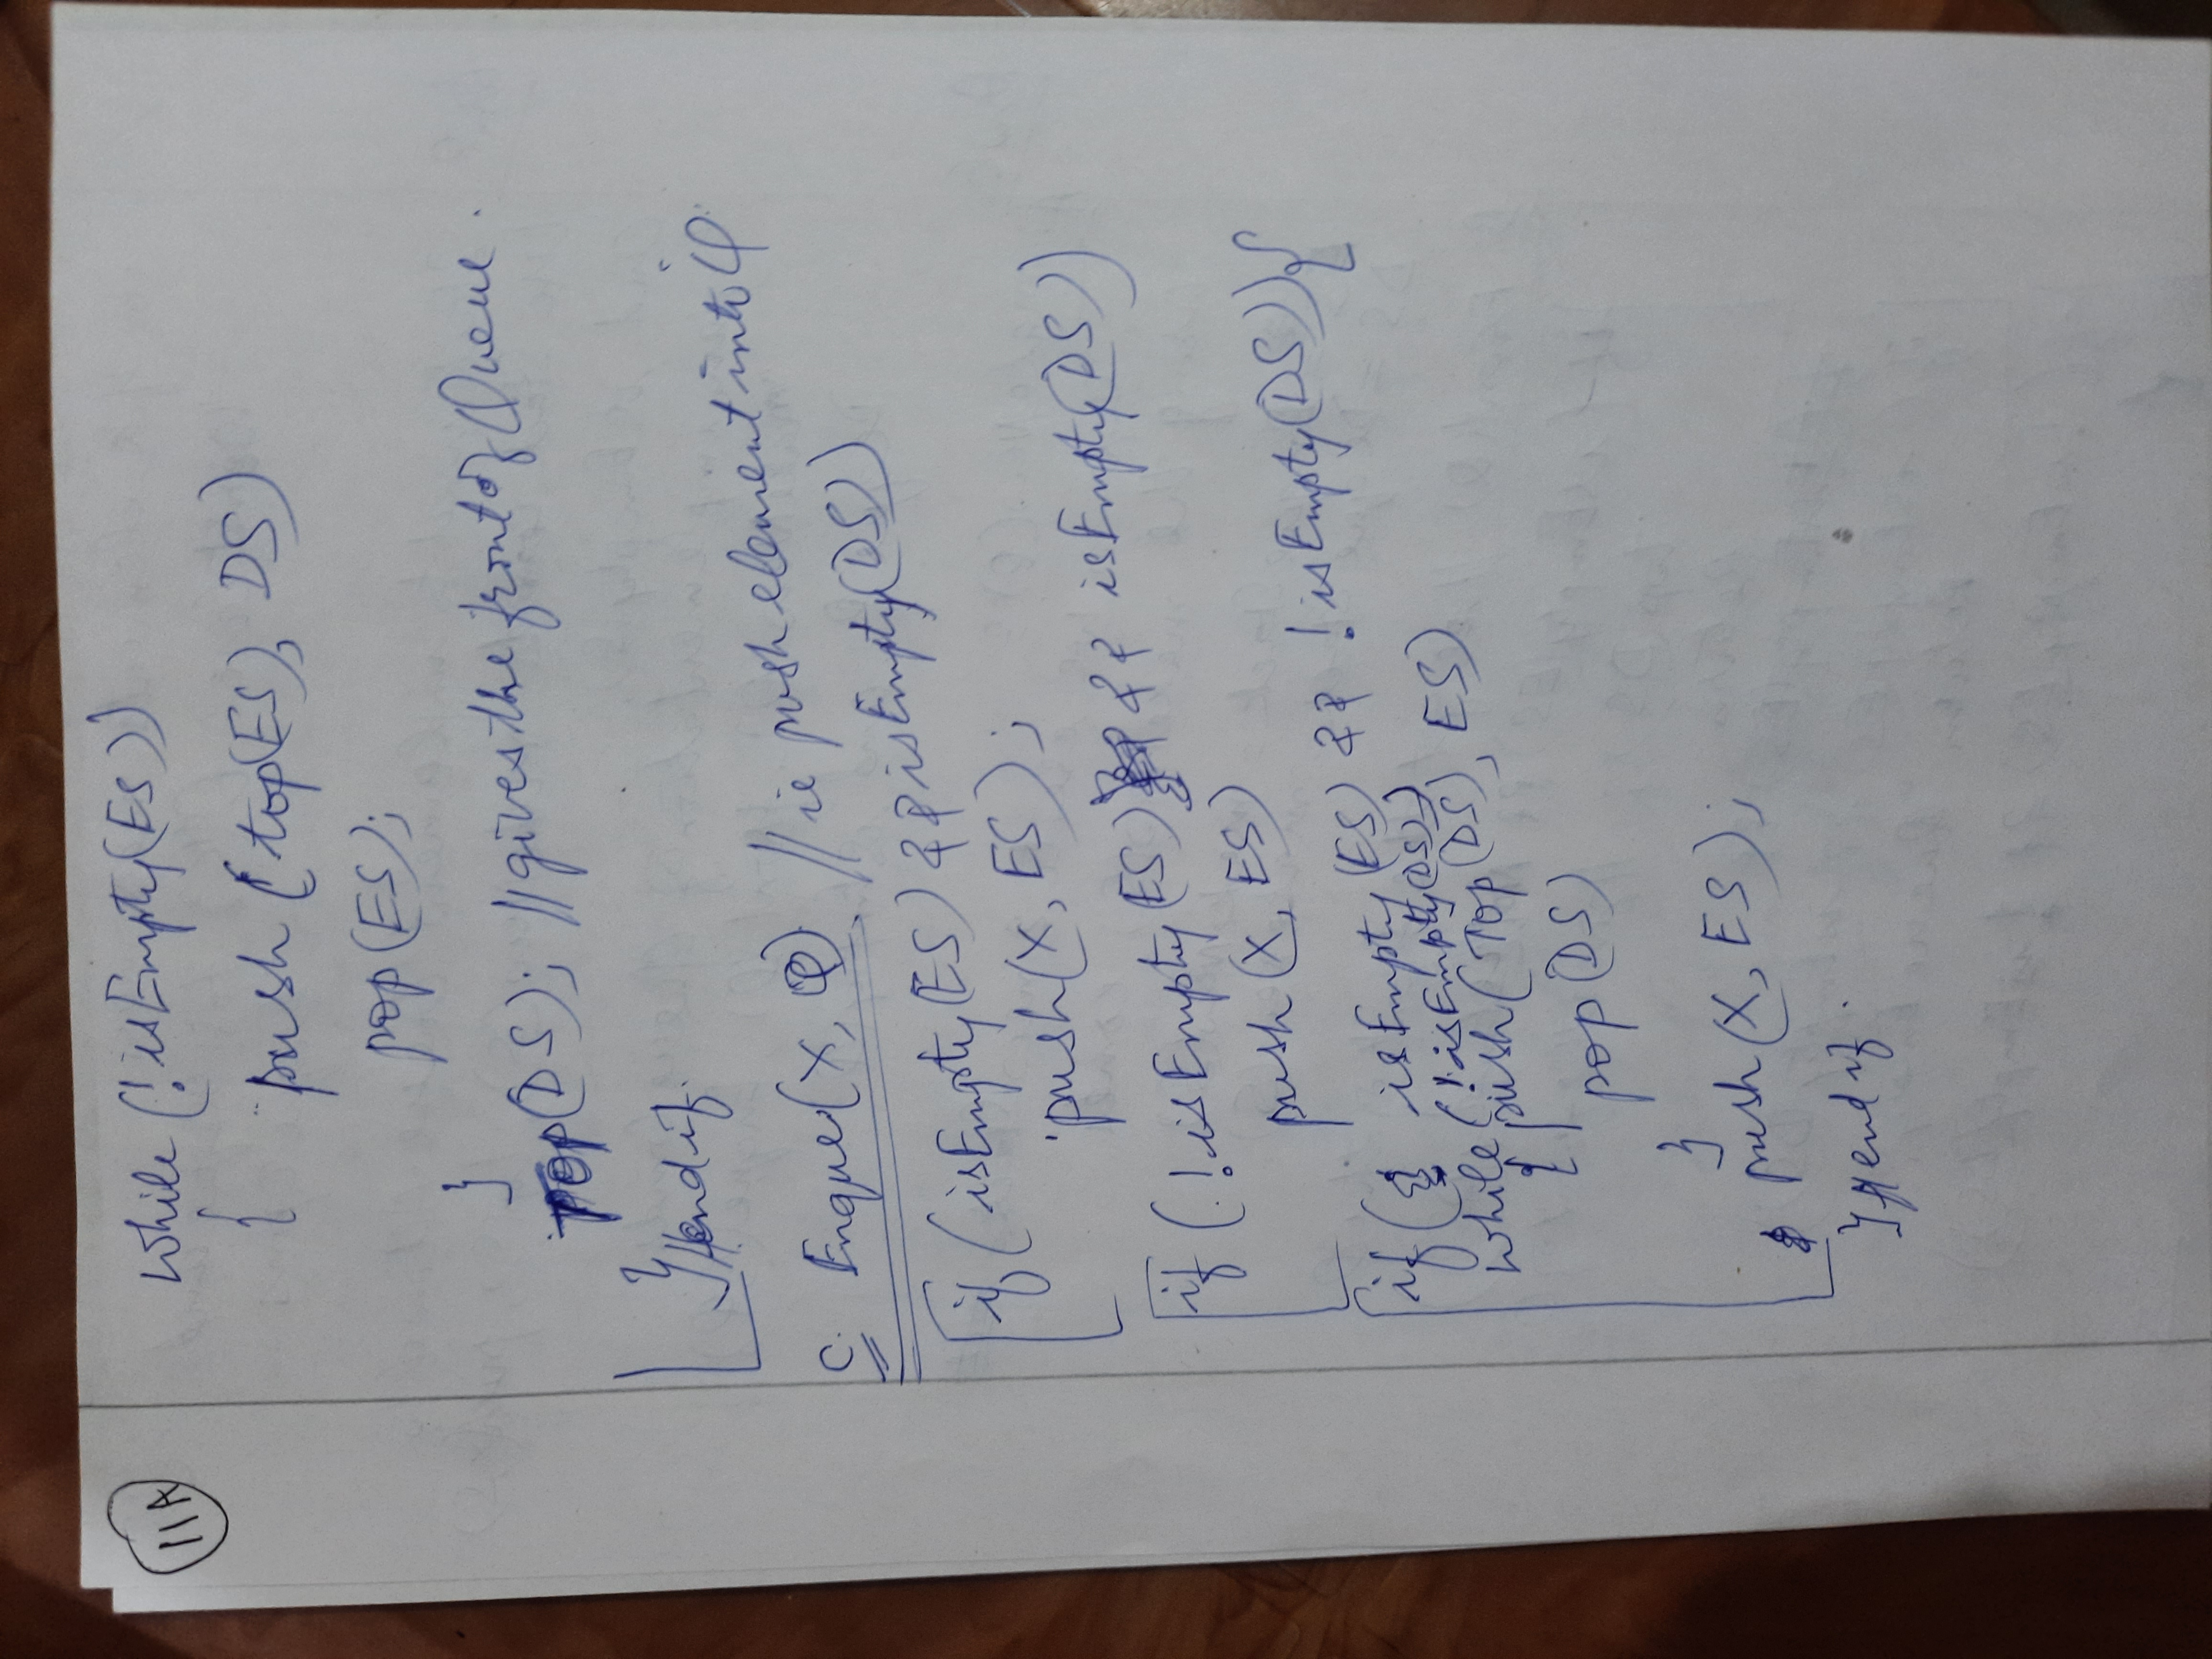 11A
while (!isEmpty(ES))
{ push (top(ES), DS)
pop(ES);
}
Top(DS); //gives the front of Queue.
}//endif.
C. Enque(X, Q) // ie push element into Q
if (isEmpty(ES) && isEmpty(DS))
push(X, ES);
if (!isEmpty(ES) && isEmpty(DS))
push (X, ES)
if ( isEmpty(ES) && !isEmpty(DS)){
while (!isEmpty(DS))
{ push (Top(DS), ES)
pop(DS)
}
push(X, ES);
}//endif.